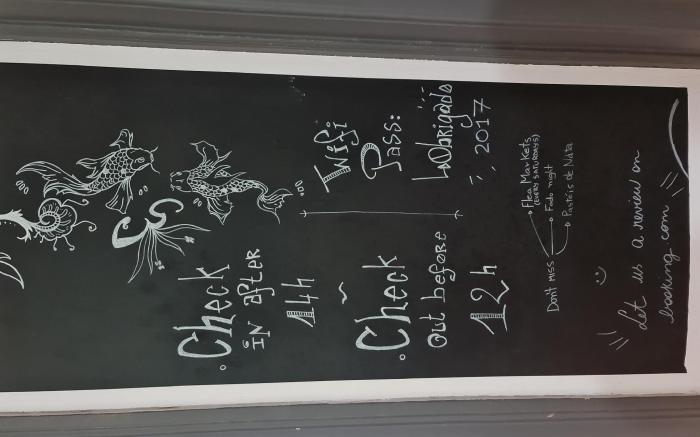 Wifi
Pass:
Obrigado
2017
Check
IN after
14h
Check
Out before
12h
Don't miss
Flea Markets
(EVERY SATURDAYS)
Fado night
Pastéis de Nata
Let us a review on
booking.com